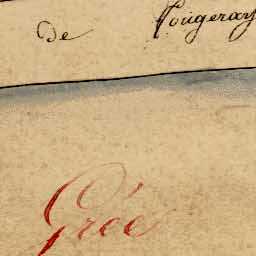 de Fougeray
Grée